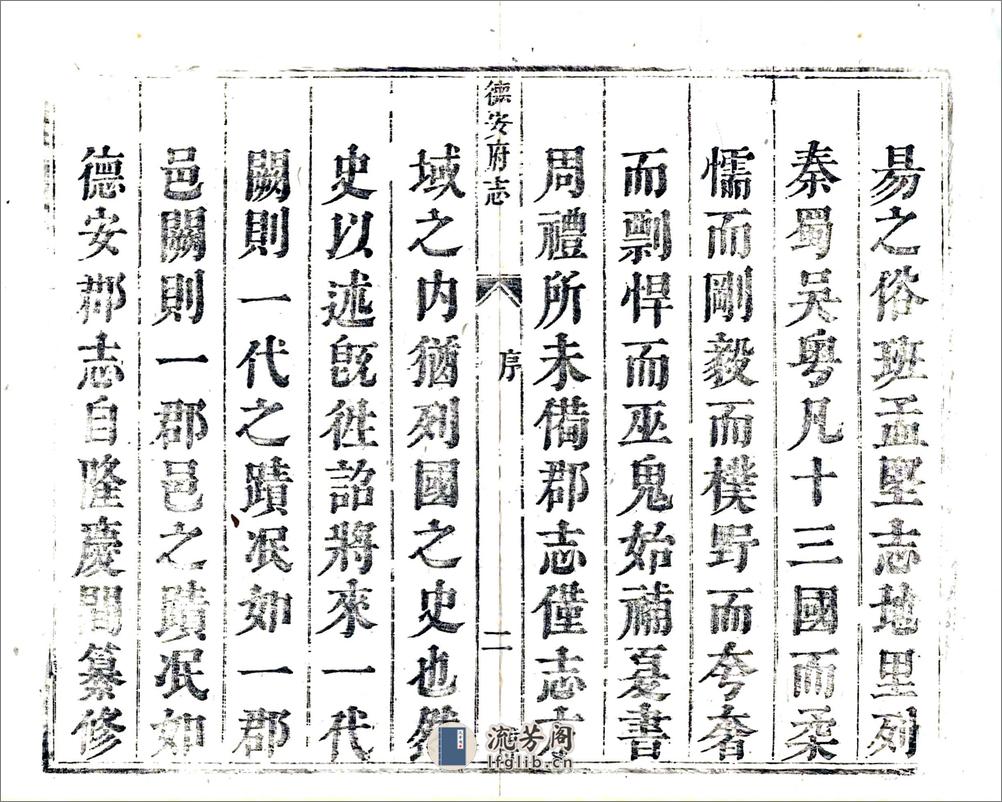 易之俗班孟堅志地里列
秦蜀吳粵凡十三國而柔
懦而剛毅而樸野而夸奢
而剽悍而巫鬼始補夏書
周禮所未備郡志僅志
德安府志
序
二
域之內猶列國之史也
史以述旣徃詔將來一代
闕則一代之蹟泯如一郡
邑闕則一郡邑之蹟泯如
德安郡志自隆慶間纂修
流芳阁
lfglib.cn